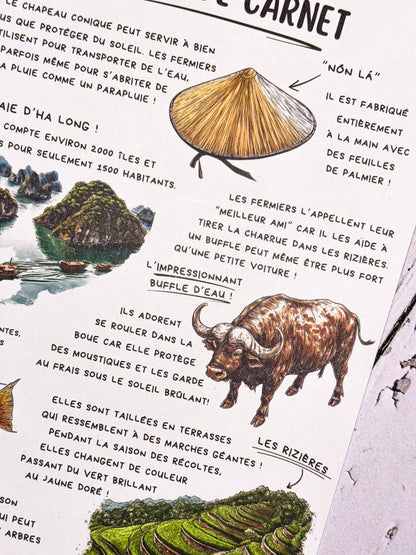 CARNET
LE CHAPEAU CONIQUE PEUT SERVIR À BIEN
US QUE PROTÉGER DU SOLEIL. LES FERMIERS
UTILISENT POUR TRANSPORTER DE L'EAU,
PARFOIS MÊME POUR S'ABRITER DE
LA PLUIE COMME UN PARAPLUIE !
"NÓN LÁ"
IL EST FABRIQUÉ
ENTIÈREMENT
À LA MAIN AVEC
DES FEUILLES
DE PALMIER !
AIE D'HA LONG !
COMPTE ENVIRON 2000 ÎLES ET
S POUR SEULEMENT 1500 HABITANTS.
LES FERMIERS L'APPELLENT LEUR
"MEILLEUR AMI" CAR IL LES AIDE À
TIRER LA CHARRUE DANS LES RIZIÈRES.
UN BUFFLE PEUT MÊME ÊTRE PLUS FORT
QU'UNE PETITE VOITURE !
L'IMPRESSIONNANT
BUFFLE D'EAU !
ILS ADORENT
SE ROULER DANS LA
BOUE CAR ELLE PROTÈGE
DES MOUSTIQUES ET LES GARDE
AU FRAIS SOUS LE SOLEIL BRÛLANT!
NTES,
ES
ELLES SONT TAILLÉES EN TERRASSES
QUI RESSEMBLENT À DES MARCHES GÉANTES !
PENDANT LA SAISON DES RÉCOLTES,
ELLES CHANGENT DE COULEUR
PASSANT DU VERT BRILLANT
AU JAUNE DORÉ !
LES RIZIÈRES
SON
QUI PEUT
ARBRES